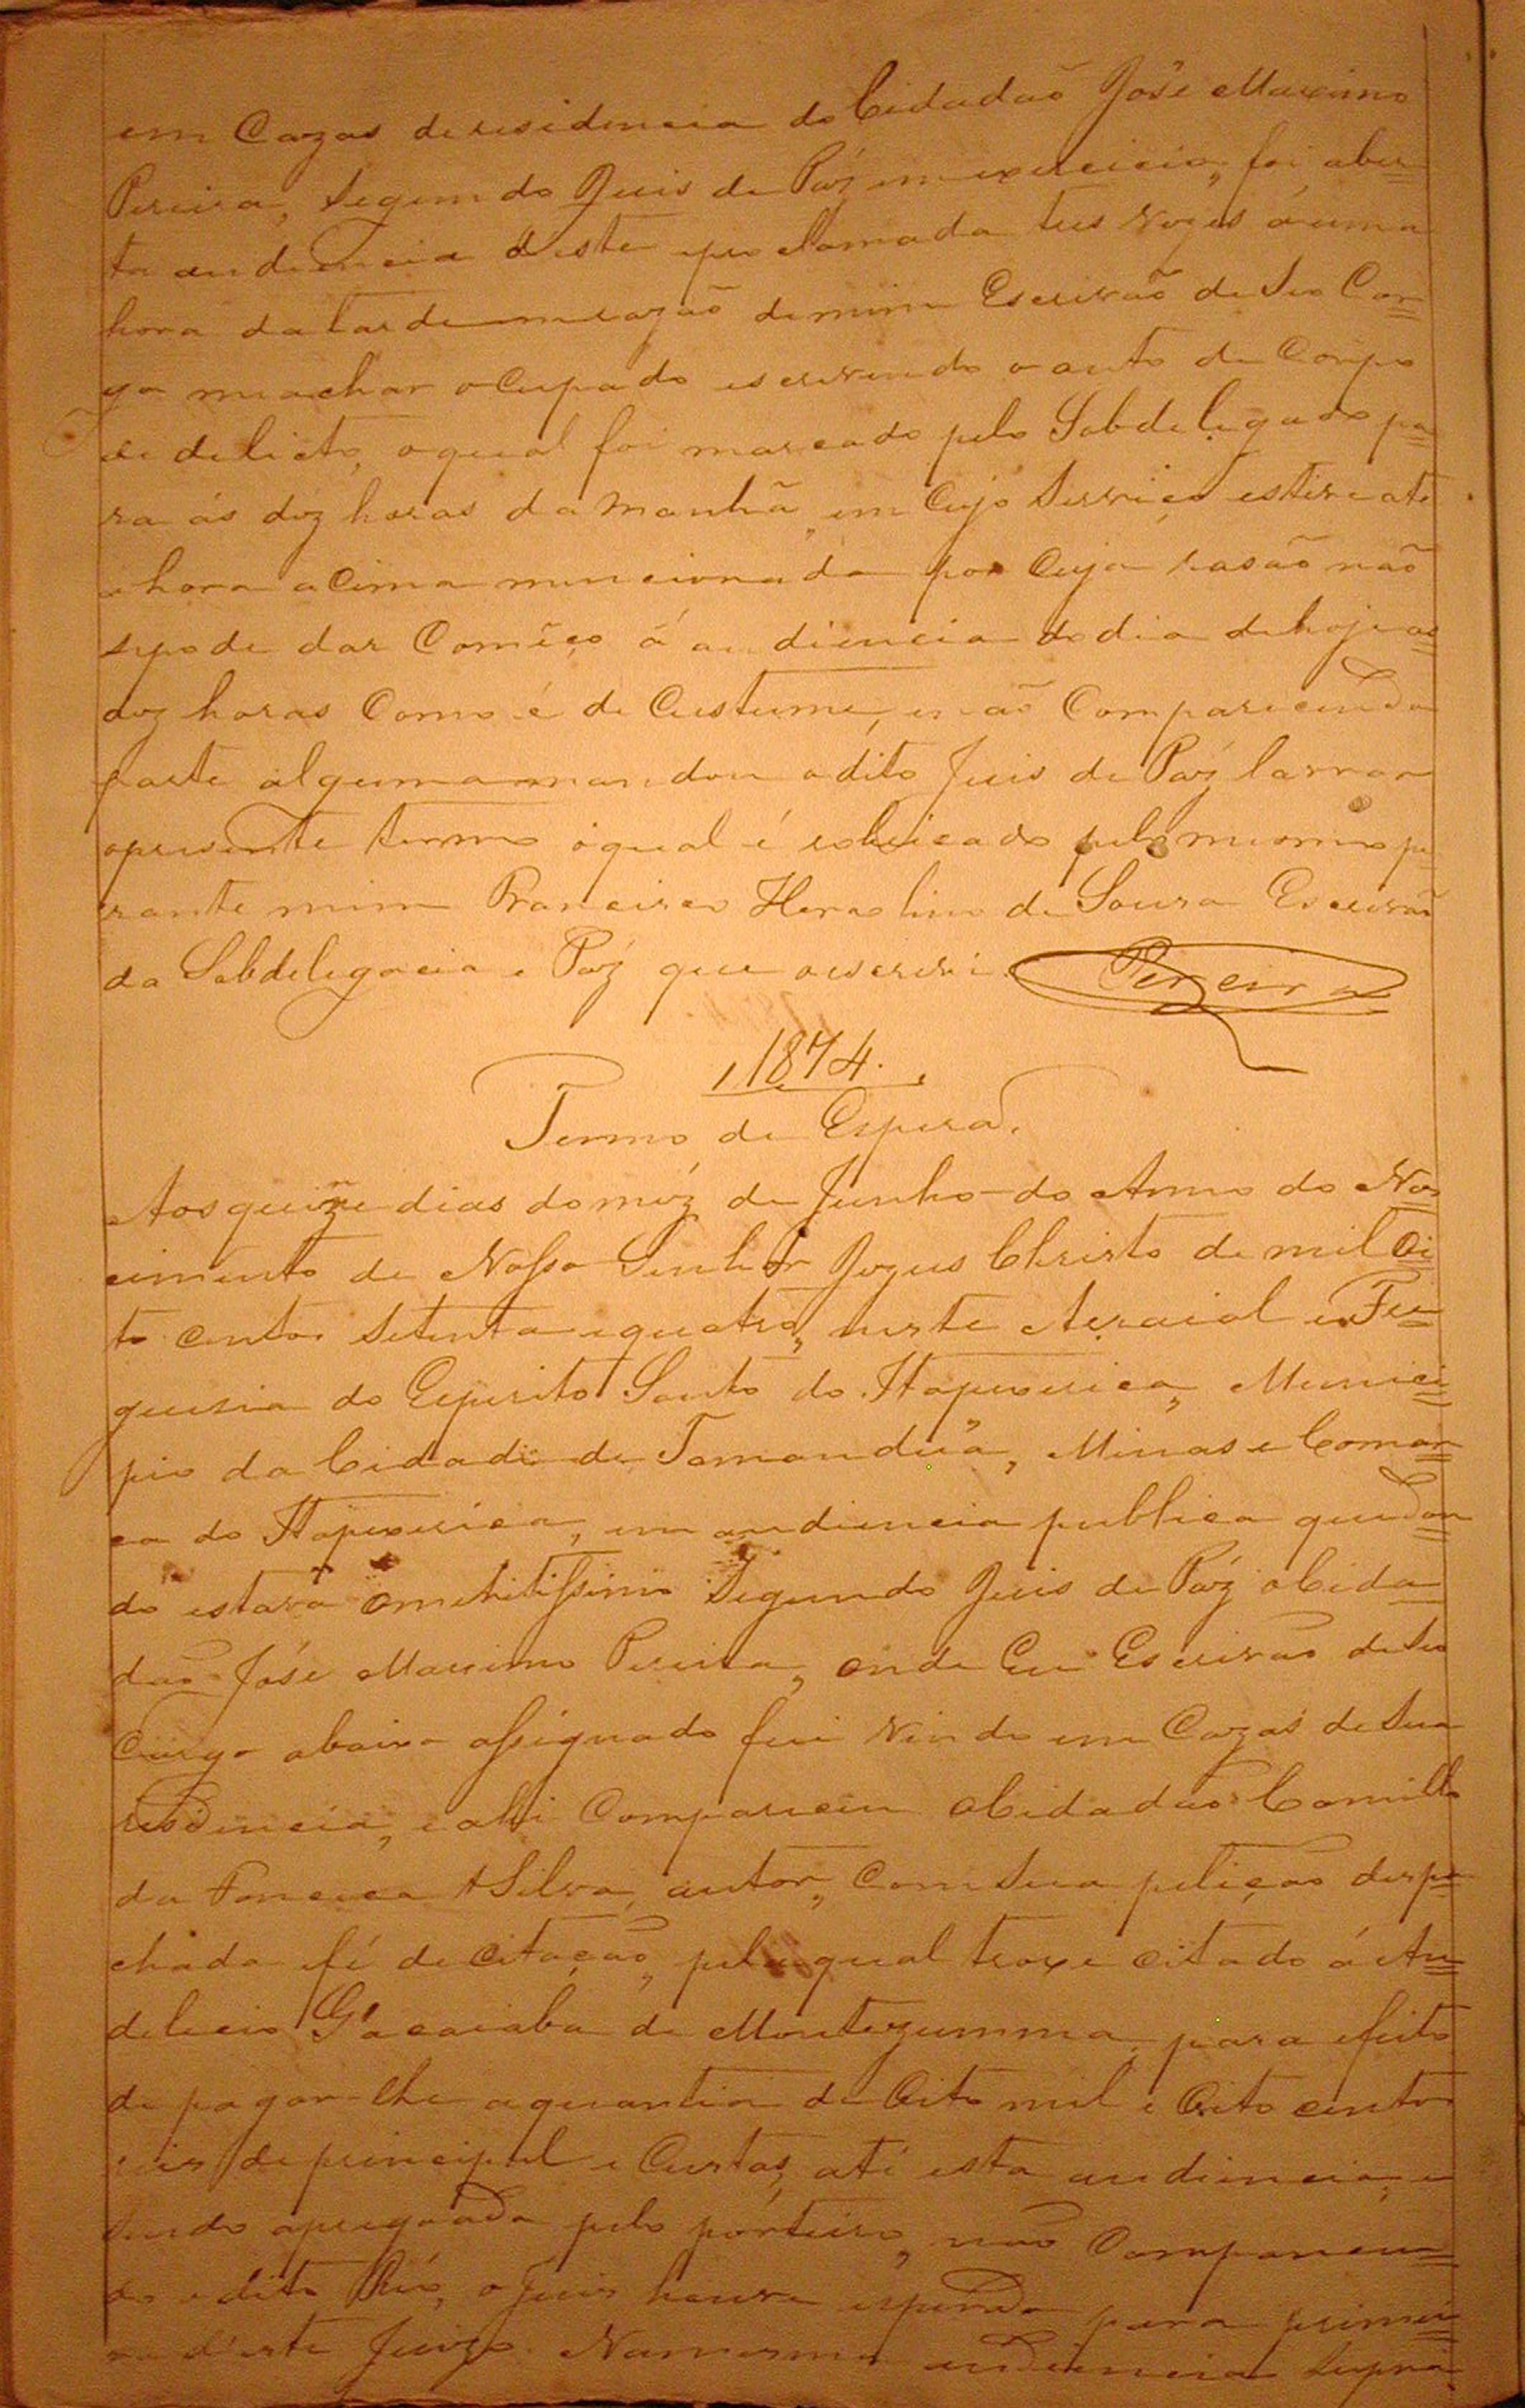 em Cazas de residencia do Cidadão José Maximo
Pereira, Segundo Juis de Páz em exercicio, foi aber=
ta audiencia deste proclamada tres Vezes á uma
hora da tarde em razão de mim Escrivão de Seo Car=
go me achar ocupado escrevendo o auto de Corpo
de delicto, o qual foi marcado pelo Sobdelegado pa=
ra ás dez horas da manhã, em Cujo Serviço estive até
a hora acima mencionada por Cuja rasão não
se pode dar Comêço á audiencia do dia de hoje as=
dez horas Como é de Custume, e não Comparecendo
parte alguma mandou o dito Juis de Páz lavrar
o presente termo o qual é robricado pelo mesmo pe=
rante mim Francisco Heraclino de Souza Escrivão
da Sobdelegacia e Páz que o escrevi. Pereira
1874.
Termo de Espera.
Aos quinze dias do mêz de Junho do Anno do Nas=
cimento de Nosso Senhor Jezus Christo de mil Oi=
to centos Setenta e quatro, neste Arraial e Fre=
guesia do Espirito Santo do Itapecerica, Munici=
pio da Cidade de Tamanduá, Minas e Comar=
ca do Itapecerica, em audiencia publica que dan=
do estava o meritissimo Segundo Juis de Páz o Cida=
dão José Maximo Pereira, onde Eu Escrivão de Seo
Cargo abaixo assignado fui Vindo em Cazas de Sua
residencia, e ahi Compareceu o Cidadão Camillo
da Fonceca e Silva, autor, Com Sua petição despa=
chada e fé de Citação, pela qual troxe citado á An=
delecio Gacaiaba de Montezumma, para efeito
de pagar-lhe a quantia de Oito mil e Oito centos
reis de principal e Custas, até esta audiencia, e
sendo apregoado pelo porteiro, não Comparecen=
do o dito Réo, o Juis houve esperado para primei=
ra d'este Juizo. Na mesma audiencia Supra